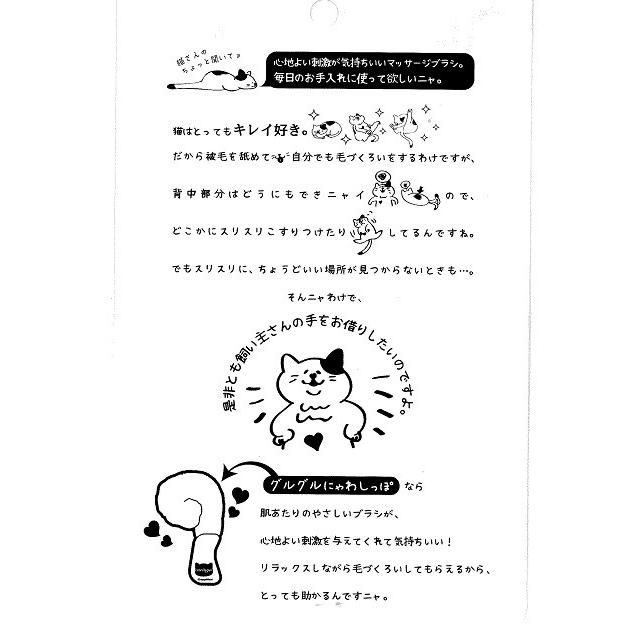 猫さんの
ちょっと聞いて♪
心地よい刺激が気持ちいいマッサージブラシ。
毎日のお手入れに使って欲しいニャ。
猫はとってもキレイ好き。
だから被毛を舐めて自分でも毛づくろいをするわけですが、
背中部分はどうにもできニャイので、
どこかにスリスリこすりつけたりしてるんですね。
でもスリスリに、ちょうどいい場所が見つからないときも…。
そんニャわけで、
是非とも飼い主さんの手をお借りしたいのですよ。
グルグルにゃわしっぽ なら
肌あたりのやさしいブラシが、
心地よい刺激を与えてくれて気持ちいい！
リラックスしながら毛づくろいしてもらえるから、
とっても助かるんですニャ。